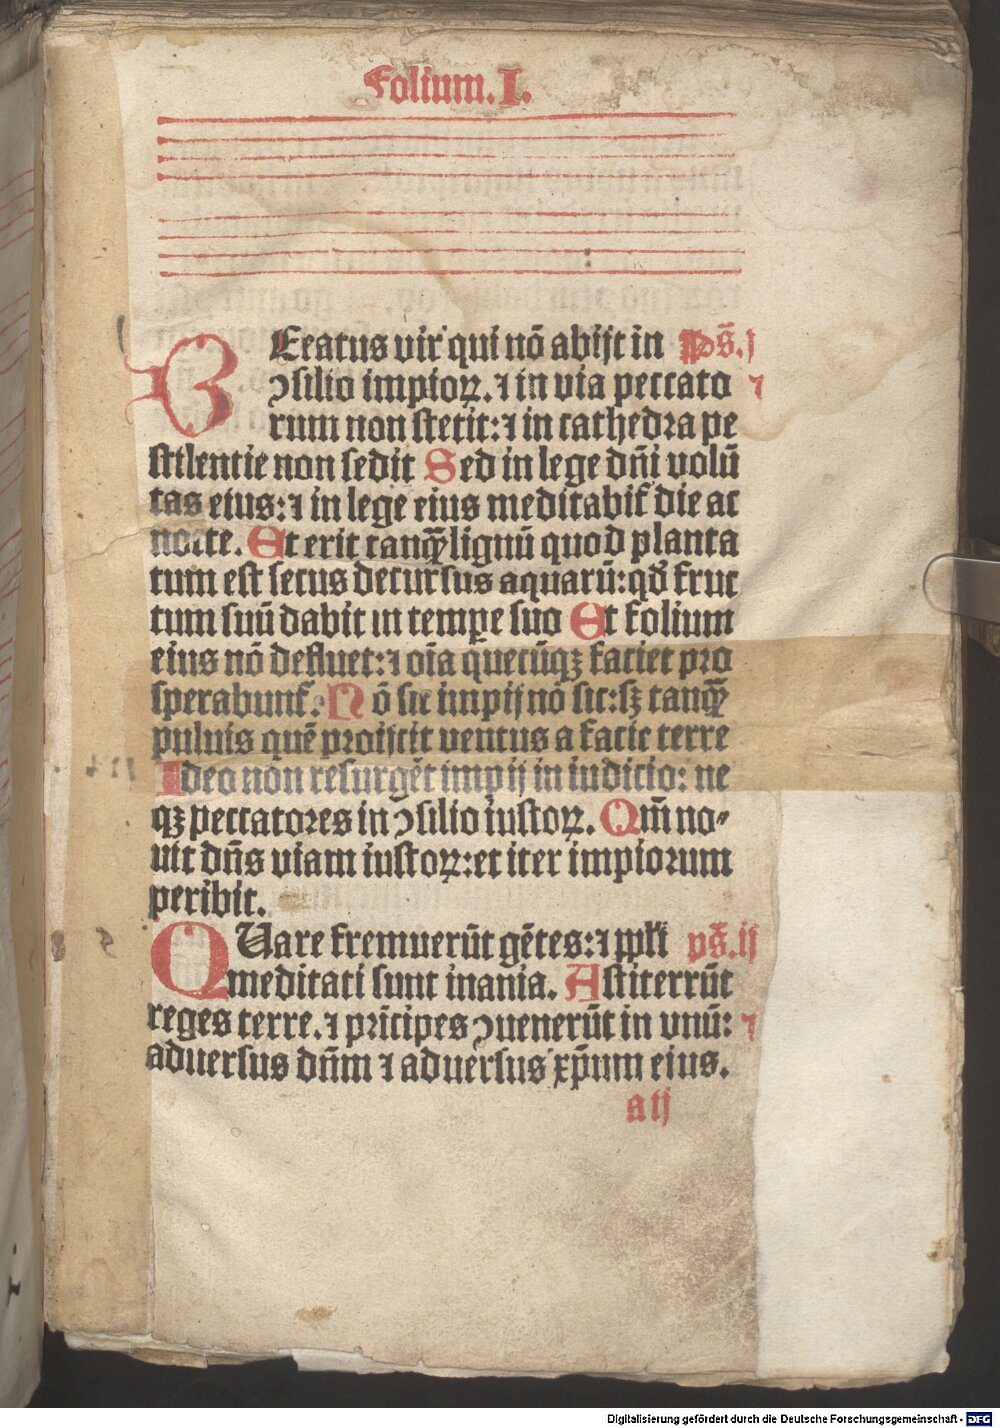 Folium.I.
BEeatus vir qui nō abijt in ps̄.j
ɔsilio impioꝝ.⁊ in via peccato
rum non stetit:⁊ in cathedra pe
stilentie non sedit Sed in lege dn̄i volū
tas eius:⁊ in lege eius meditabit᷑ die ac
nocte. Et erit tanqꝫ̄ lignū quod planta
tum est secus decursus aquarū:qd̄ fruc
tum suū dabit in tempe suo Et folium
eius nō defluet:⁊ oīa quecūqꝫ faciet pro
sperabunt᷑. Nō sic impij nō sic:sꝫ tanqꝫ̄
puluis quē proijcit ventus a facie terre
Ideo non resurgēt impij in iudicio: ne
qꝫ peccatores in ɔsilio iustoꝝ. Qm̄ no⸗
uit dn̄s viam iustoꝝ:et iter impiorum
peribit.
QUare fremuerūt gētes:⁊ ppl̄i ps̄.ij
meditati sunt inania. Astiterrūt
reges terre.⁊ prīcipes ɔuenerūt in vnū: ⁊
aduersus dn̄m ⁊ aduersus xp̄um eius.
a ij
Digitalisierung gefördert durch die Deutsche Forschungsgemeinschaft - DFG